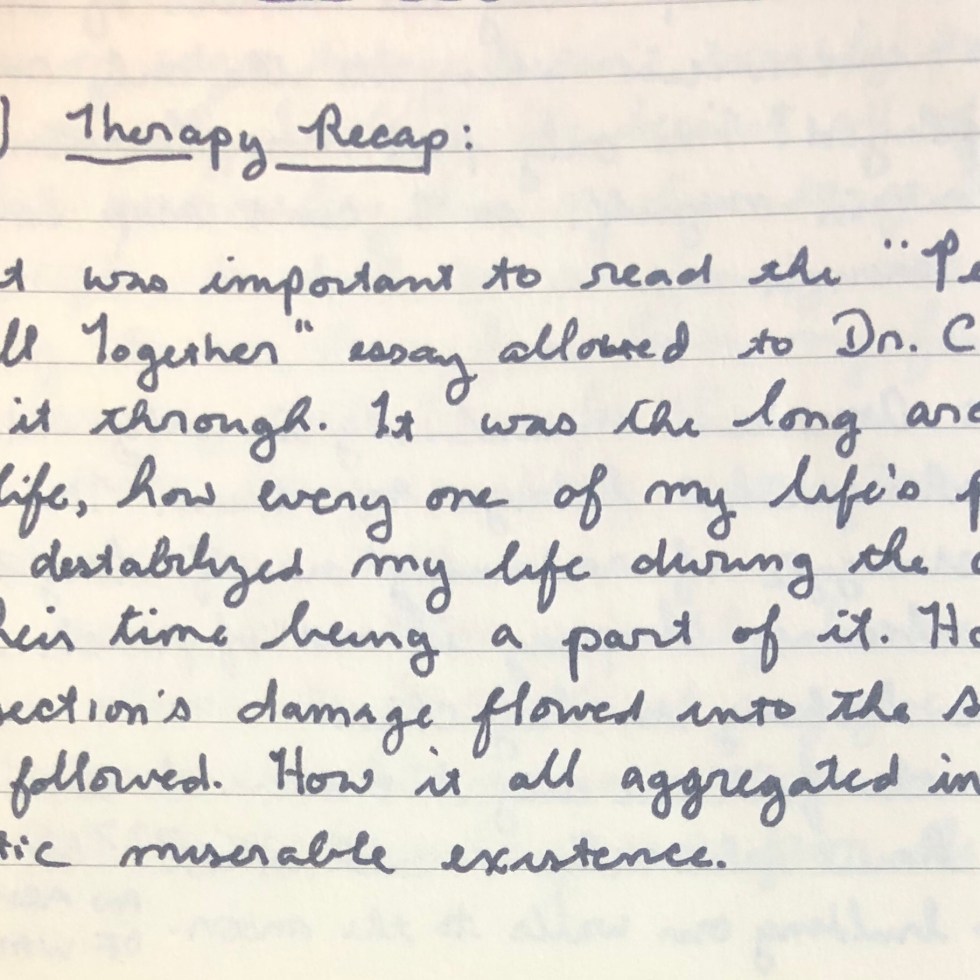 ] Therapy Recap:
t was important to read the "Pe
ll Together" essay allowed to Dr. C
it through. It was the long arc
life, how every one of my life's p
destabilized my life during the c
heir time being a part of it. Ho
section's damage flowed into the s
followed. How it all aggregated in
tic miserable existence.